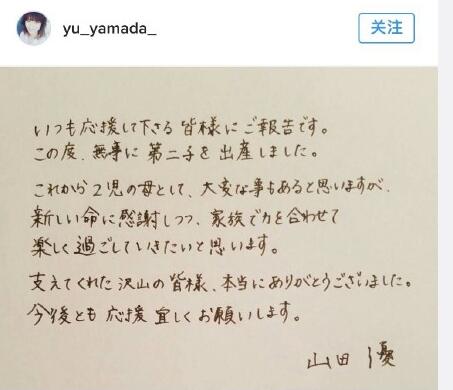 yu_yamada_
关注
いつも応援して下さる皆様にご報告です。
この度、無事に第二子を出産しました。
これから2児の母として、大変な事もあると思いますが、
新しい命に感謝しつつ、家族で力を合わせて
楽しく過ごしていきたいと思います。
支えてくれた沢山の皆様、本当にありがとうございました。
今後とも応援宜しくお願いします。
山田優